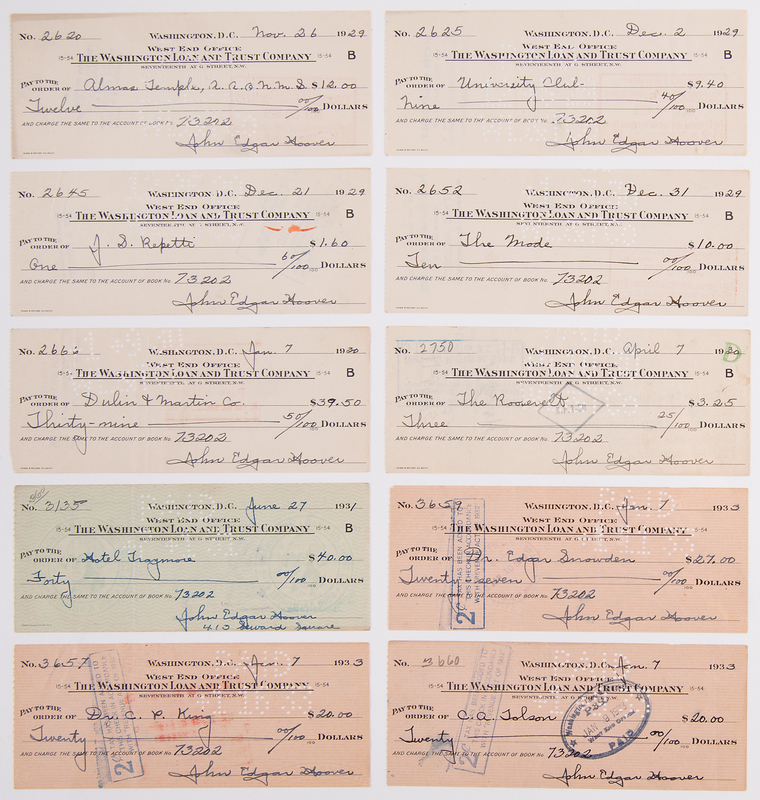 No. 2620 WASHINGTON, D.C. Nov. 26 1929
WEST END OFFICE
15-54 THE WASHINGTON LOAN AND TRUST COMPANY 15-54 B
SEVENTEENTH AT G STREET, N.W.
PAY TO THE ORDER OF Almas Temple, A.A.O.N.M.S $12.00
Twelve 00/100 DOLLARS
AND CHARGE THE SAME TO THE ACCOUNT OF BOOK No. 73202
John Edgar Hoover
No. 2625 WASHINGTON, D.C. Dec. 2 1929
WEST END OFFICE
15-54 THE WASHINGTON LOAN AND TRUST COMPANY 15-54 B
SEVENTEENTH AT G STREET, N.W.
PAY TO THE ORDER OF University Club- $9.40
Nine 40/100 DOLLARS
AND CHARGE THE SAME TO THE ACCOUNT OF BOOK No. 73202
John Edgar Hoover
No. 2645 WASHINGTON, D.C. Dec. 21 1929
WEST END OFFICE
15-54 THE WASHINGTON LOAN AND TRUST COMPANY 15-54 B
SEVENTEENTH AT G STREET, N.W.
PAY TO THE ORDER OF J. D. Repetti $1.60
One 60/100 DOLLARS
AND CHARGE THE SAME TO THE ACCOUNT OF BOOK No. 73202
John Edgar Hoover
No. 2652 WASHINGTON, D.C. Dec. 31 1929
WEST END OFFICE
15-54 THE WASHINGTON LOAN AND TRUST COMPANY 15-54 B
SEVENTEENTH AT G STREET, N.W.
PAY TO THE ORDER OF The Mode $10.00
Ten 00/100 DOLLARS
AND CHARGE THE SAME TO THE ACCOUNT OF BOOK No. 73202
John Edgar Hoover
No. WASHINGTON, D.C. Jan. 7 1930
WEST END OFFICE
15-54 THE WASHINGTON LOAN AND TRUST COMPANY 15-54 B
SEVENTEENTH AT G STREET, N.W.
PAY TO THE ORDER OF Dulin & Martin Co. $39.50
Thirty-nine 50/100 DOLLARS
AND CHARGE THE SAME TO THE ACCOUNT OF BOOK No. 73202
John Edgar Hoover
No. 2750 WASHINGTON, D.C. April 7 1930
WEST END OFFICE
15-54 THE WASHINGTON LOAN AND TRUST COMPANY 15-54 B
SEVENTEENTH AT G STREET, N.W.
PAY TO THE ORDER OF The Roosevelt $3.25
Three 25/100 DOLLARS
AND CHARGE THE SAME TO THE ACCOUNT OF BOOK No. 73202
John Edgar Hoover
No. 3135 WASHINGTON, D.C. June 27 1931
WEST END OFFICE
15-54 THE WASHINGTON LOAN AND TRUST COMPANY 15-54 B
SEVENTEENTH AT G STREET, N.W.
PAY TO THE ORDER OF Hotel Traymore $40.00
Forty 00/100 DOLLARS
AND CHARGE THE SAME TO THE ACCOUNT OF BOOK No. 73202
John Edgar Hoover
413 Seward Square
No. 3659 WASHINGTON, D.C. Jan. 7 1933
WEST END OFFICE
15-54 THE WASHINGTON LOAN AND TRUST COMPANY 15-54
SEVENTEENTH AT G STREET, N.W.
PAY TO THE ORDER OF Dr. Edgar Snowden $27.00
Twenty seven 00/100 DOLLARS
AND CHARGE THE SAME TO THE ACCOUNT OF BOOK No. 73202
John Edgar Hoover
No. 3657 WASHINGTON, D.C. Jan. 7 1933
WEST END OFFICE
15-54 THE WASHINGTON LOAN AND TRUST COMPANY 15-54
SEVENTEENTH AT G STREET, N.W.
PAY TO THE ORDER OF Dr. C. P. King $20.00
Twenty 00/100 DOLLARS
AND CHARGE THE SAME TO THE ACCOUNT OF BOOK No. 73202
John Edgar Hoover
No. 3660 WASHINGTON, D.C. Jan. 7 1933
WEST END OFFICE
15-54 THE WASHINGTON LOAN AND TRUST COMPANY 15-54
SEVENTEENTH AT G STREET, N.W.
PAY TO THE ORDER OF C. A. Tolson $20.00
Twenty 00/100 DOLLARS
AND CHARGE THE SAME TO THE ACCOUNT OF BOOK No. 73202
PAID
John Edgar Hoover